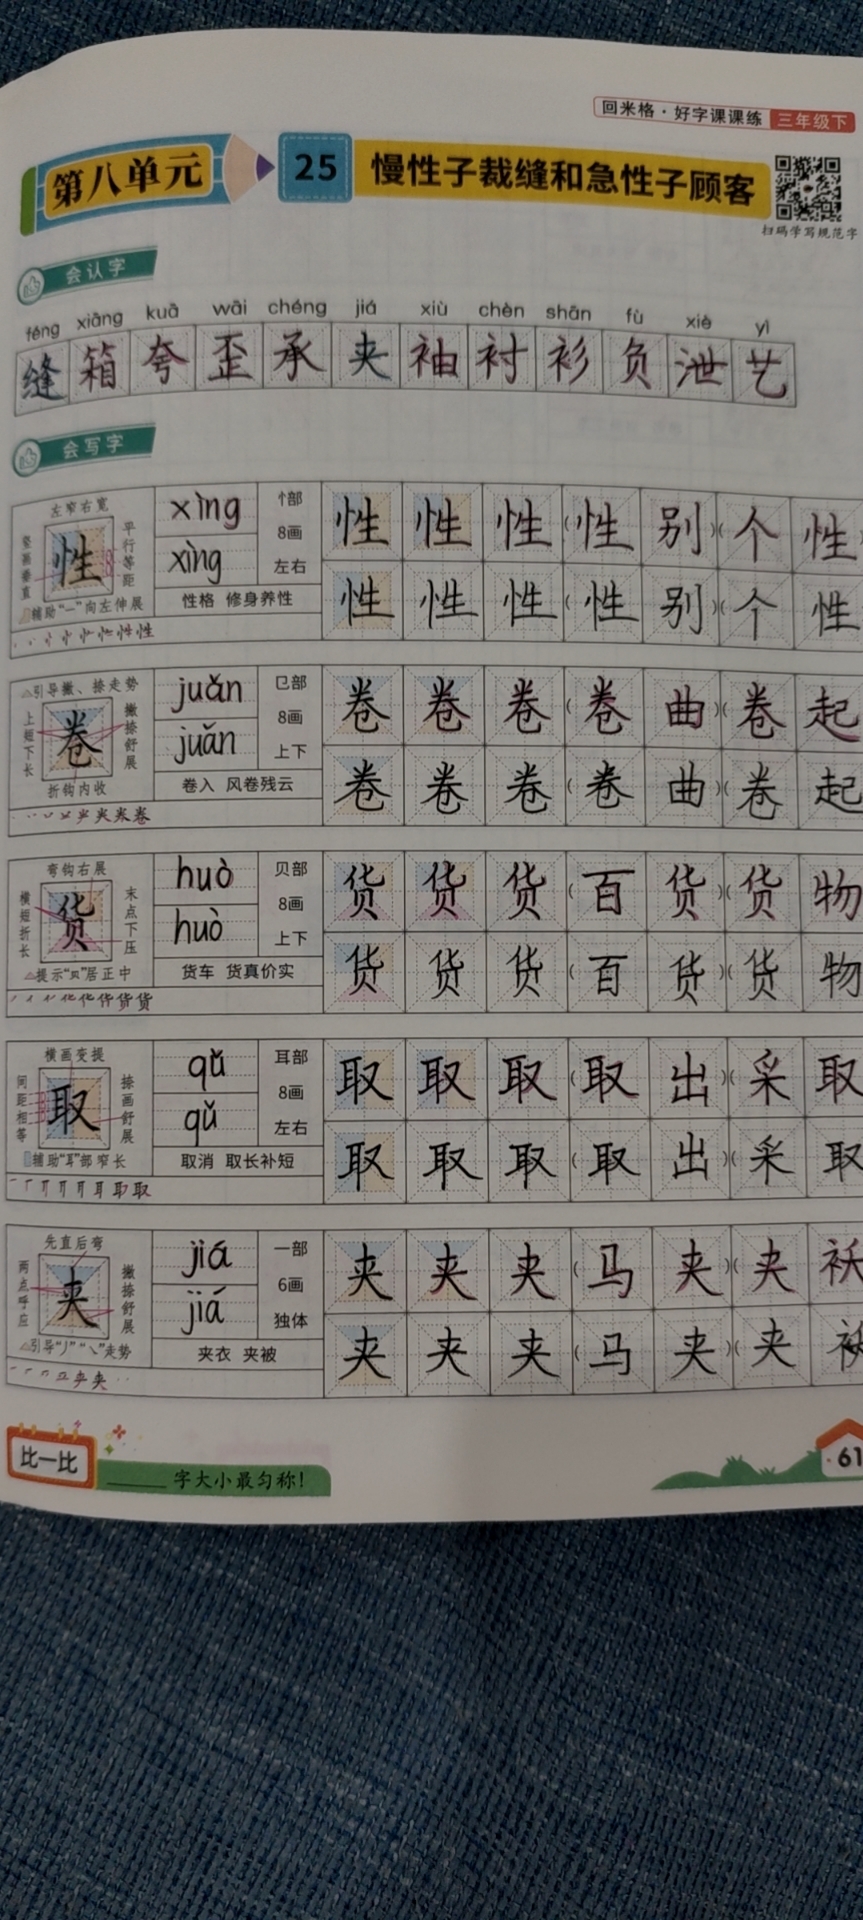 回米格·好字课课练 三年级下
第八单元 25 慢性子裁缝和急性子顾客
扫码学写规范字
会认字
féng xiāng kuā wāi chéng jiá xiù chèn shān fù xiè yì
缝 箱 夸 歪 承 夹 袖 衬 衫 负 泄 艺
会写字
左窄右宽
竖画垂直
性
平行等距
辅助“一”向左伸展
xìng
xìng
忄部
8画
左右
性格 修身养性
性 性 性 (性 别)(个 性
性 性 性 (性 别)(个 性
引导撇、捺走势
上短下长
卷
撇捺舒展
折钩内收
juǎn
juǎn
㔾部
8画
上下
卷入 风卷残云
卷 卷 卷 (卷 曲)(卷 起
卷 卷 卷 (卷 曲)(卷 起
弯钩右展
横短折长
货
末点下压
提示“贝”居正中
huò
huò
贝部
8画
上下
货车 货真价实
货 货 货 (百 货)(货 物
货 货 货 (百 货)(货 物
横画变提
间距相等
取
捺画舒展
辅助“耳”部窄长
qǔ
qǔ
耳部
8画
左右
取消 取长补短
取 取 取 (取 出)(采 取
取 取 取 (取 出)(采 取
先直后弯
两点呼应
夹
撇捺舒展
引导“丿”“㇏”走势
jiá
jiá
一部
6画
独体
夹衣 夹被
夹 夹 夹 (马 夹)(夹 袄
夹 夹 夹 (马 夹)(夹 袄
比一比
字大小最匀称!
61